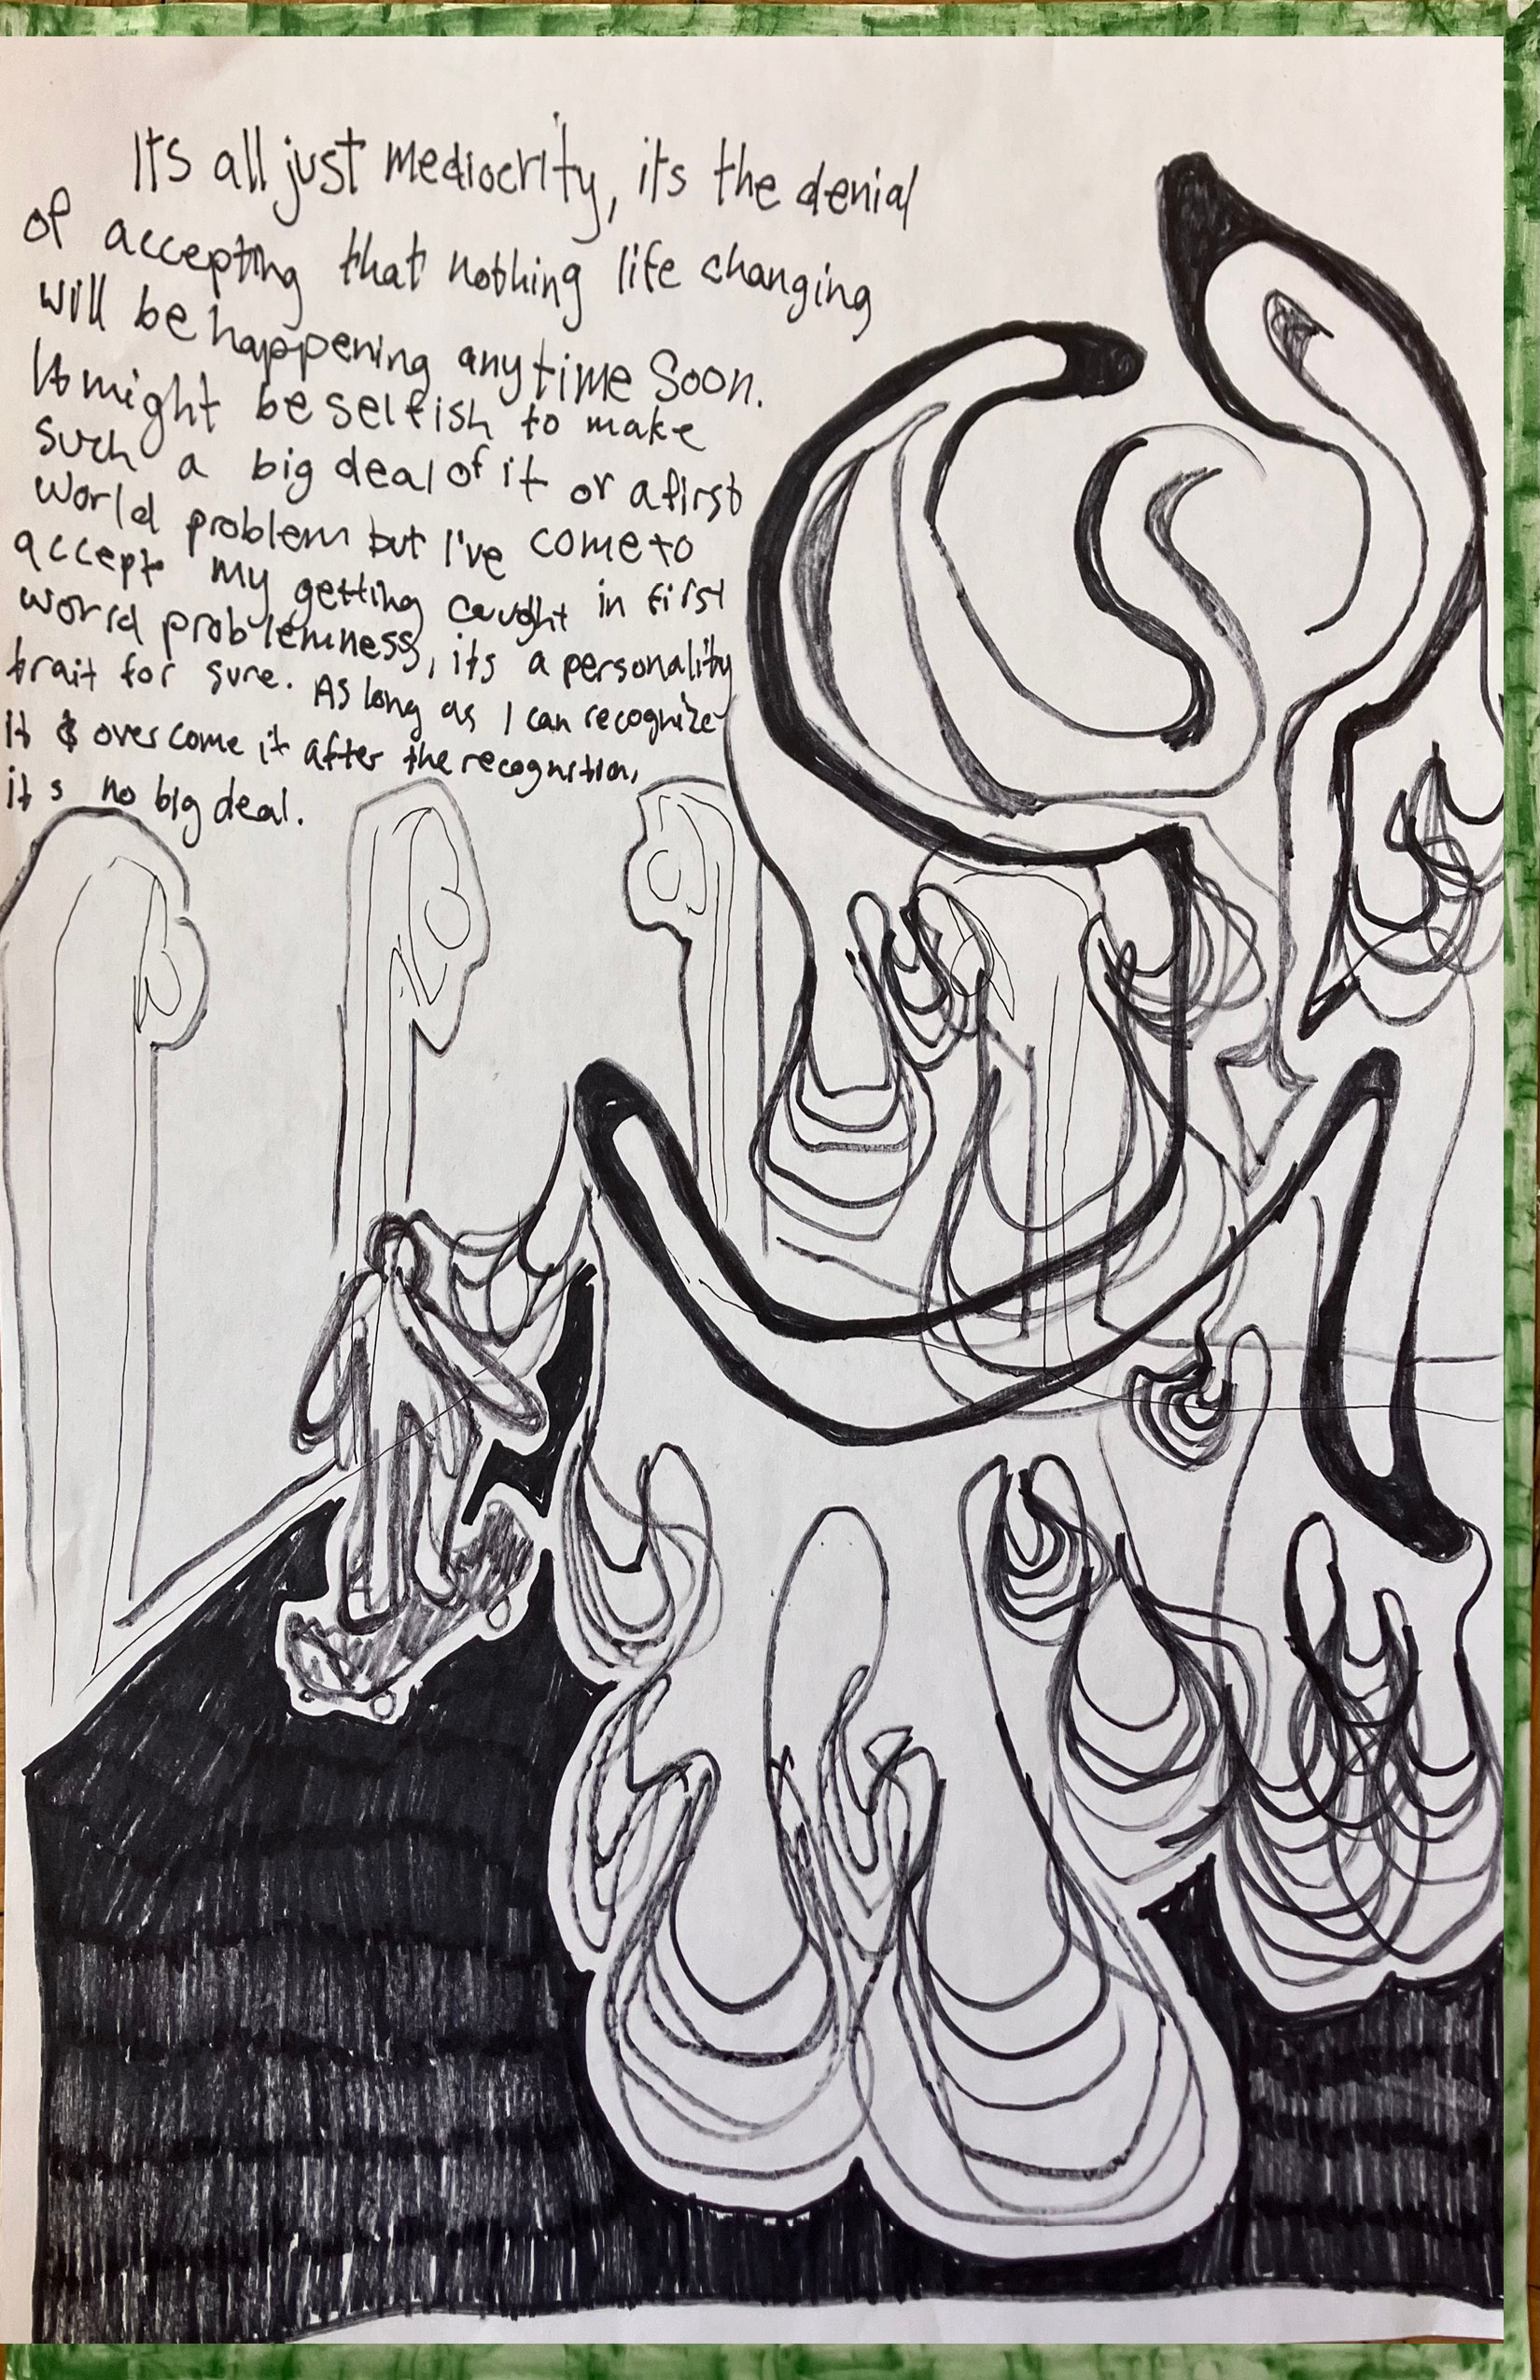 Its all just mediocrity, its the denial
of accepting that nothing life changing
will be happening anytime soon.
It might be selfish to make
such a big deal of it or a first
world problem but I've come to
accept my getting caught in first
world problemness, its a personality
trait for sure. As long as I can recognize
it & overcome it after the recognition,
it s no big deal.